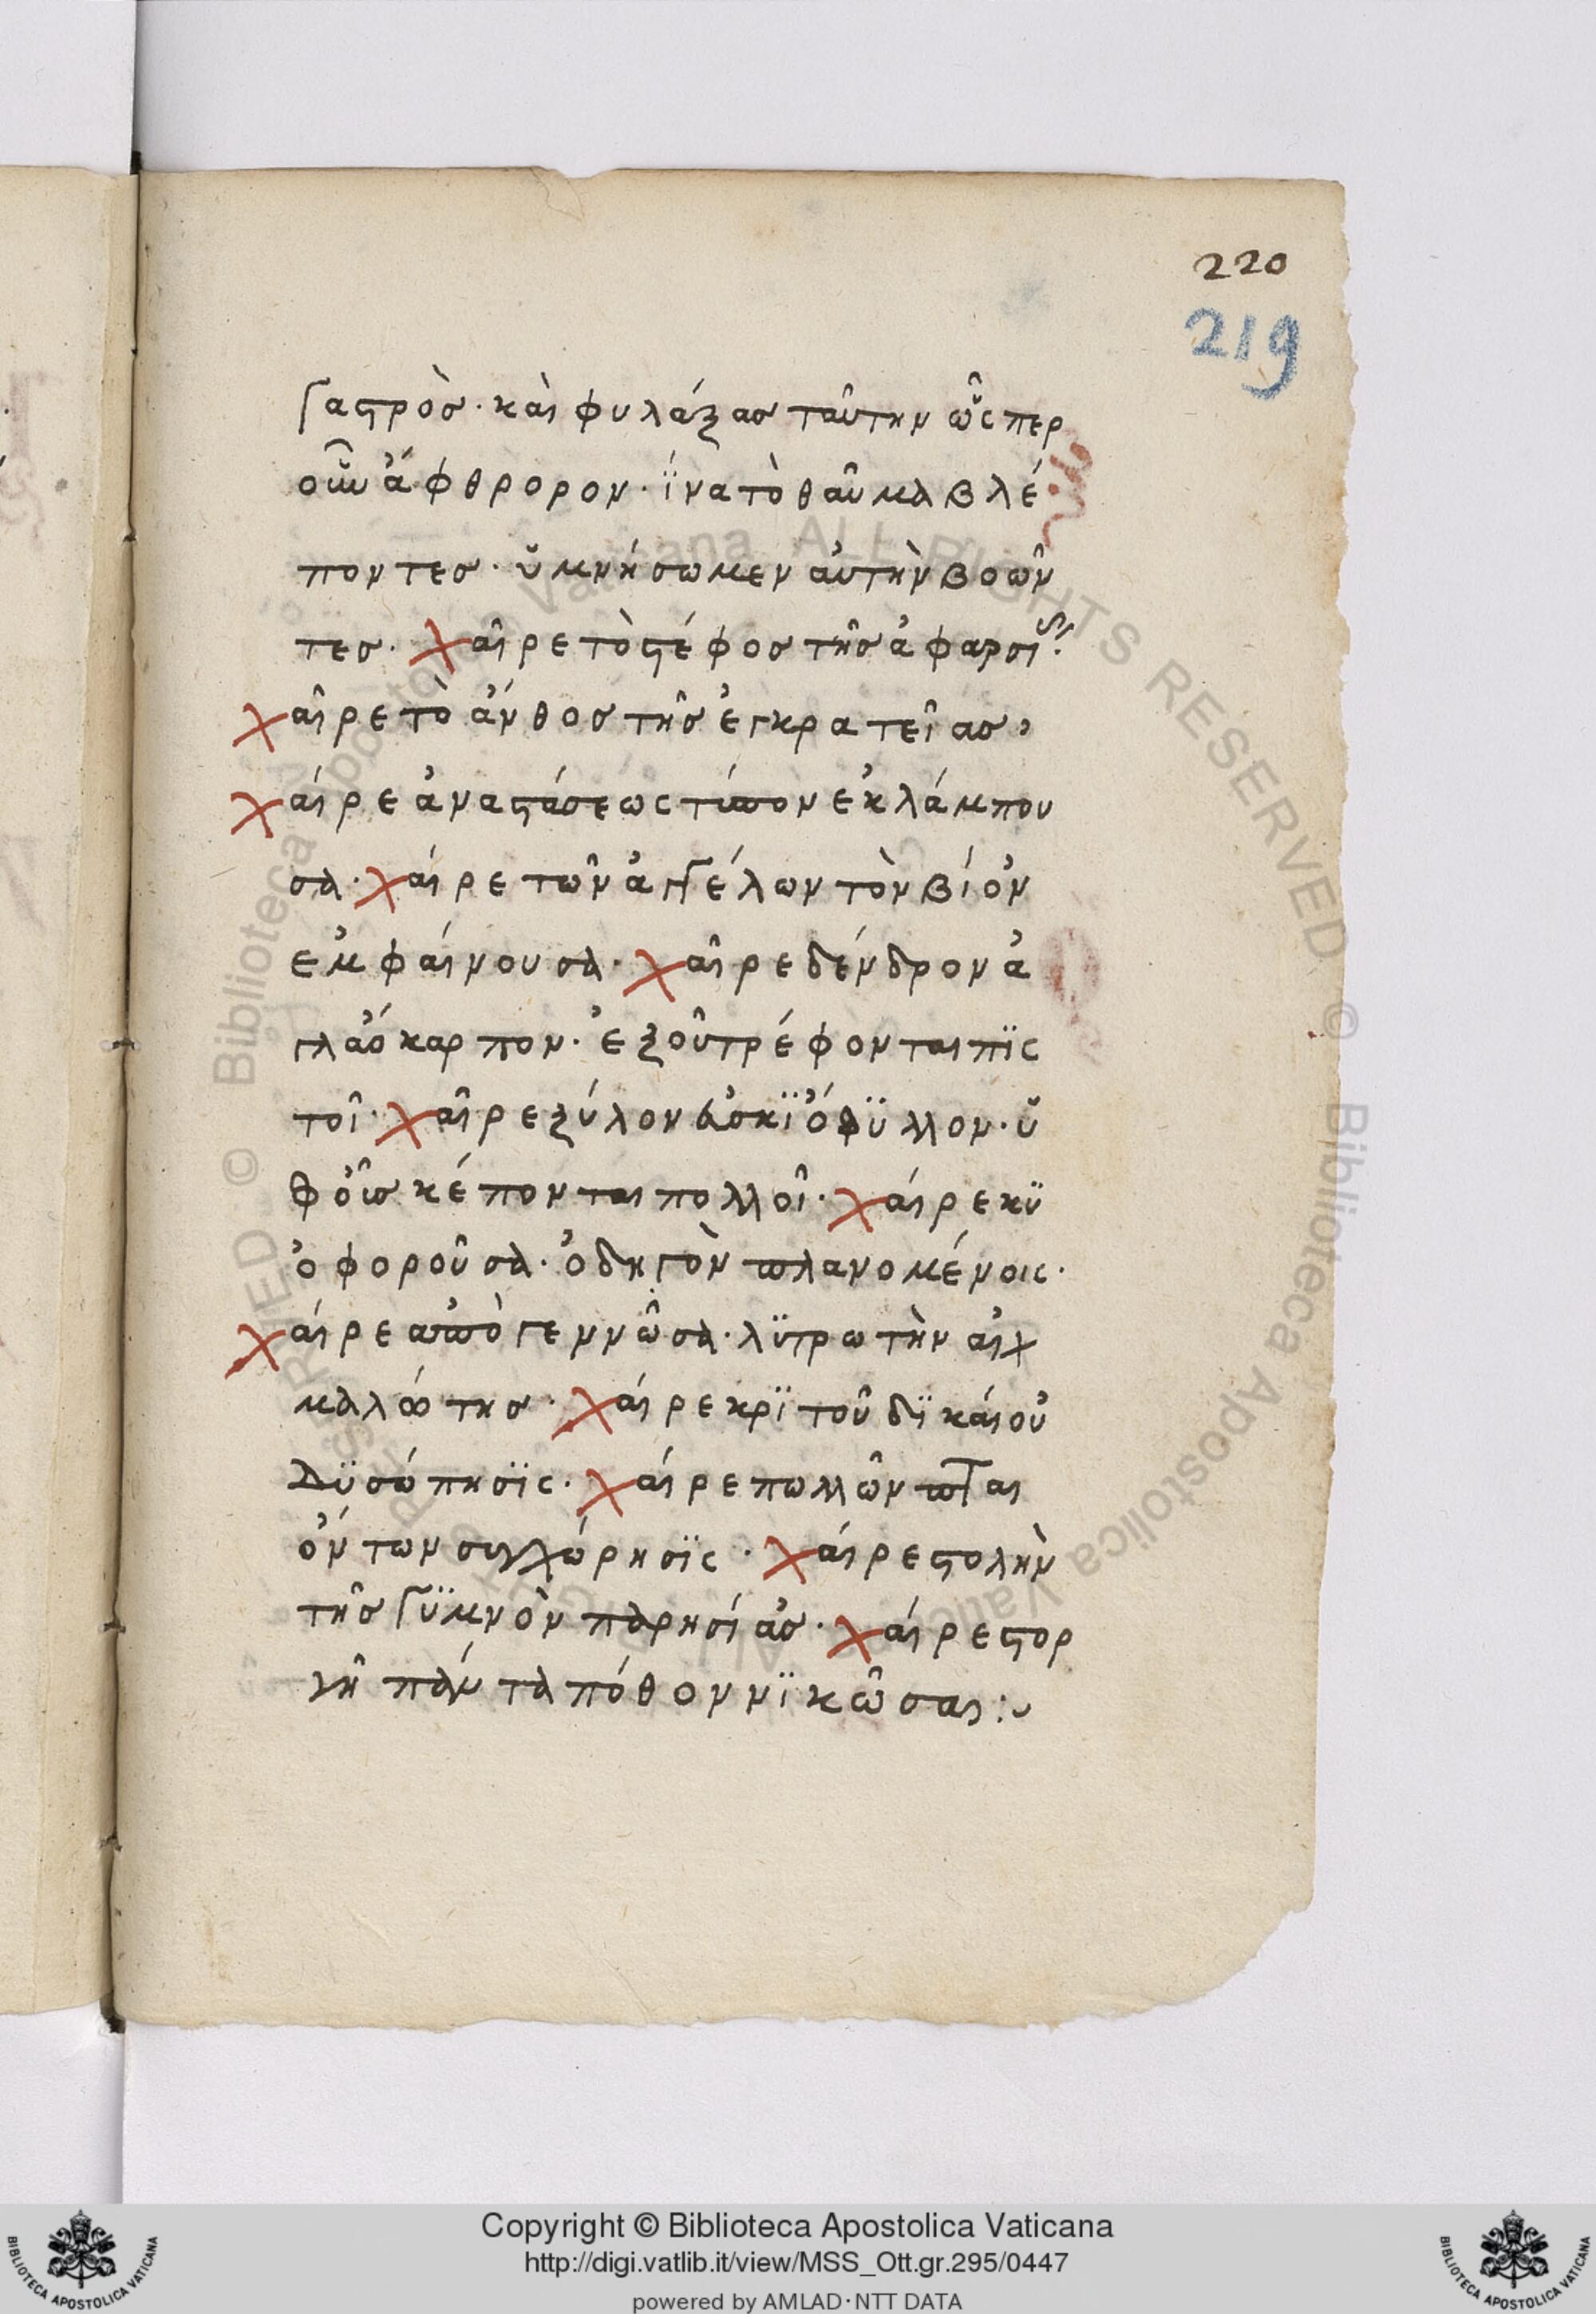 220
219
γαστρὸσ· καὶ φυλάξασ ταῦτην ὧσπερ
οὖν ἄφθρορον· ἵνα τὸ θαῦμα βλέ
ποντεσ· ὕμνήσωμεν ἀυτὴν βοῶν
τεσ· χαῖρε τὸ στέφοσ τῆσ ἀφαρσι·
χαῖρε τὸ ἄνθοσ τῆσ ἐγκρατεῖασ,
χάιρε ἀναστάσεως τύπον ἐκλάμπου
σα· χάιρε τῶν ἀγγέλων τὸν βίὀν
ἐμφάινουσα· χαῖρε δένδρον ἀ
γλαὄκαρπον· ἐξ οῦ τρέφονται πϊς
τοῖ· χαῖρε ξύλον ἐυσκϊὄφϋλλον· ὕ
φ' ὀῦ σκέπονται πολλοῖ· χάιρε κϋ
ὀφοροῦσα· ὀδηγὸν πλανομένοις·
χάιρε απὸγεννῶσα· λϋτρωτὴν αἰχ
μαλώτησ· χάιρε κρϊτοῦ δϊκάιου
Δϋσώπησϊς· χάιρε πωλλῶν πται
ὄντων συγχώρησϊς· χάιρε στολὴν
τῆσ γϋμνὸν παρησίἀσ· χάιρε στορ
γῆ πάντα πόθον νϊκῶσαι :~
Copyright © Biblioteca Apostolica Vaticana
http://digi.vatlib.it/view/MSS_Ott.gr.295/0447
powered by AMLAD·NTT DATA